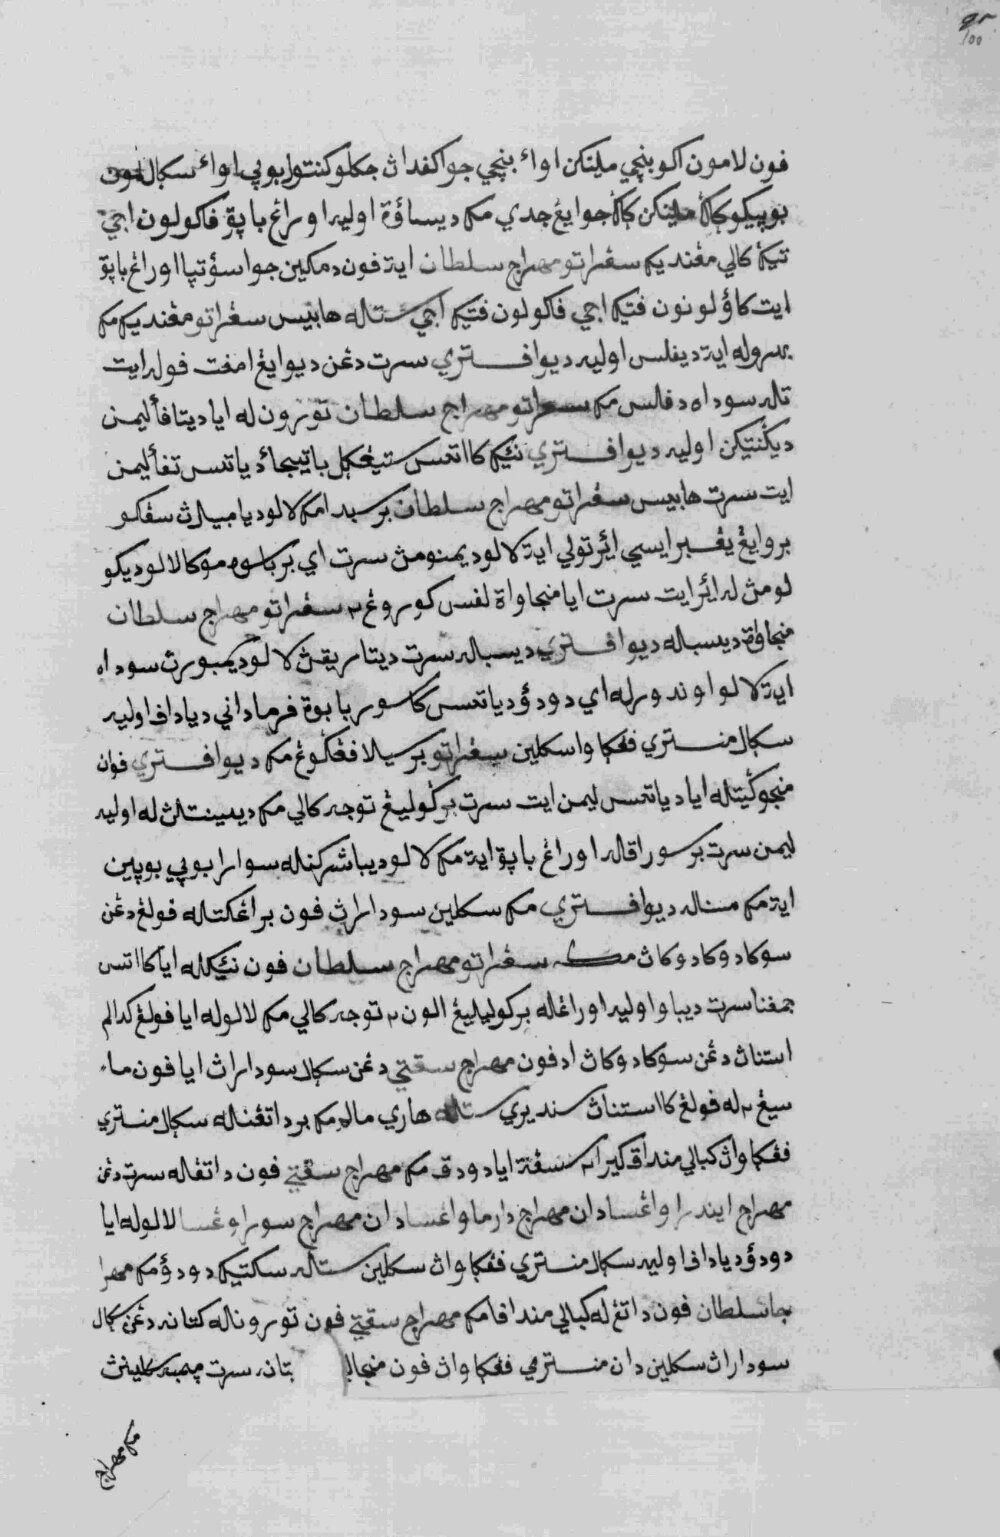 فون لامون اکو بنچي ملينکن اواء بنچي جوا کفداڽ جکلو کنتو ابوڽي اواء سکال
بوڽيکو کاکق ملينکن کاکق جوا يڠ جدي مک ديساؤة اوليه اورڠ باڽق فاکولون اجي
تيک کالي مڠندیکه سڠراتو مهراج سلطان ايت فون دمکين جوا سؤتڽا اورڠ باڽق
ايت کاؤلونون فتيکه اجي فاکولون فتيکه اجي ستله هابيس سڠراتو مڠندیکه مک
بدروله ايت ديفلس اوليه ديوا فتري سرت دڠن ديوايڠ امفت فوله ايت
تله سوداه دفلس مک سڠراتو مهراج سلطان تورونله ايا ديتافأ ليمن
ديکنتيکن اوليه ديوا فتري نئيک کأتس ستيڠکل باتيبجاء دياتس تفأ ليمن
ايت سرت هابيس سڠراتو مهراج سلطان برسبدا مک لالو ديامبيلڽ سڤکو
بروايڠ يڠ برايسي ائرتولي ايت لالو ديمنومڽ سرت اي برکاسوه موکا لالو ديکو
لومڽ له ائرايت سرت ايا منجاواة لفس کوروڠ٢ سڠراتو مهراج سلطان
منجاواة ديسباله ديوا فتري ديسباله سرت ديتاريقڽ لالو ديمبورڽ سوداه
ايت لالو اوندورله اي دودؤ دياتس کاسور بابوة فرمداني ديادف اوليه
سکال منتري فڠکاوا سکلين سڠراتو برسيلا فڠکوڠ مک ديوا فتري فون
منجوڠيتله ايا دياتس ليمن ايت سرت برکوليڠ توجه کالي مک ديدينتڽله اوليه
ليمن سرت برسوراقله اورڠ باڽق ايت مک لالو ديباشرکنله سوارا بوڽي بوڽين
ايت مک مناله ديوا فتري مک سکلين سوداراڽ فون برڠکتله فولڠ دڠن
سوکادوکادوکاڽ مک سڠراتو مهراج سلطان فون نئيکله ايا کأتس
جمفنا سرت ديباوا اوليه اورڠله برکوليليڠ الون٢ توجه کالي مک لالوله ايا فولڠ کدالم
استناڽ دڠن سوکادوکاڽ ادفون مهراج سقتي دڠن سکال سوداراڽ ايا فون ماء
سيڠ٢له فولڠ کأستناڽ سنديري ستله هاري مالم مک برداتڠنله سکال منتري
فڠکاواڽ کبالي منداڤ کيرا٢ سڤنة ايا دودق مک مهراج سقتي فون داتڠله سرت دڠن
مهراج ايندرا واڠسا دان مهراج دارما واڠسا دان مهراج سوراوڠسا لالوله ايا
دودؤ ديادف اوليه سکال منتري فڠکاواڽ سکلين ستله سکتيک دودؤ مک مهرا
جا سلطان فون داتڠله کبالي منداڤا مک مهراج سقتي فون تورونله کتانه دڠن سکال
سوداراڽ سکلين دان منتري فڠکاواڽ فون منجا بتانه سرت
مک مهراج